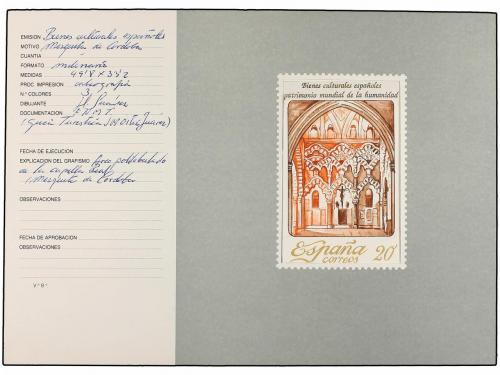 EMISION Bienes culturales españoles
MOTIVO Mezquita de Córdoba
CUANTIA
FORMATO
MEDIDAS 49'8 x 33'2
PROC. IMPRESION
Nº COLORES 3
DIBUJANTE
DOCUMENTACION F.N.M.T.
FECHA DE EJECUCION
EXPLICACION DEL GRAFISMO Arco polilobulado
de la capilla Real
Mezquita de Córdoba
OBSERVACIONES
FECHA DE APROBACION
OBSERVACIONES
VºBº
Bienes culturales españoles
patrimonio mundial de la humanidad
España
CORREOS
20